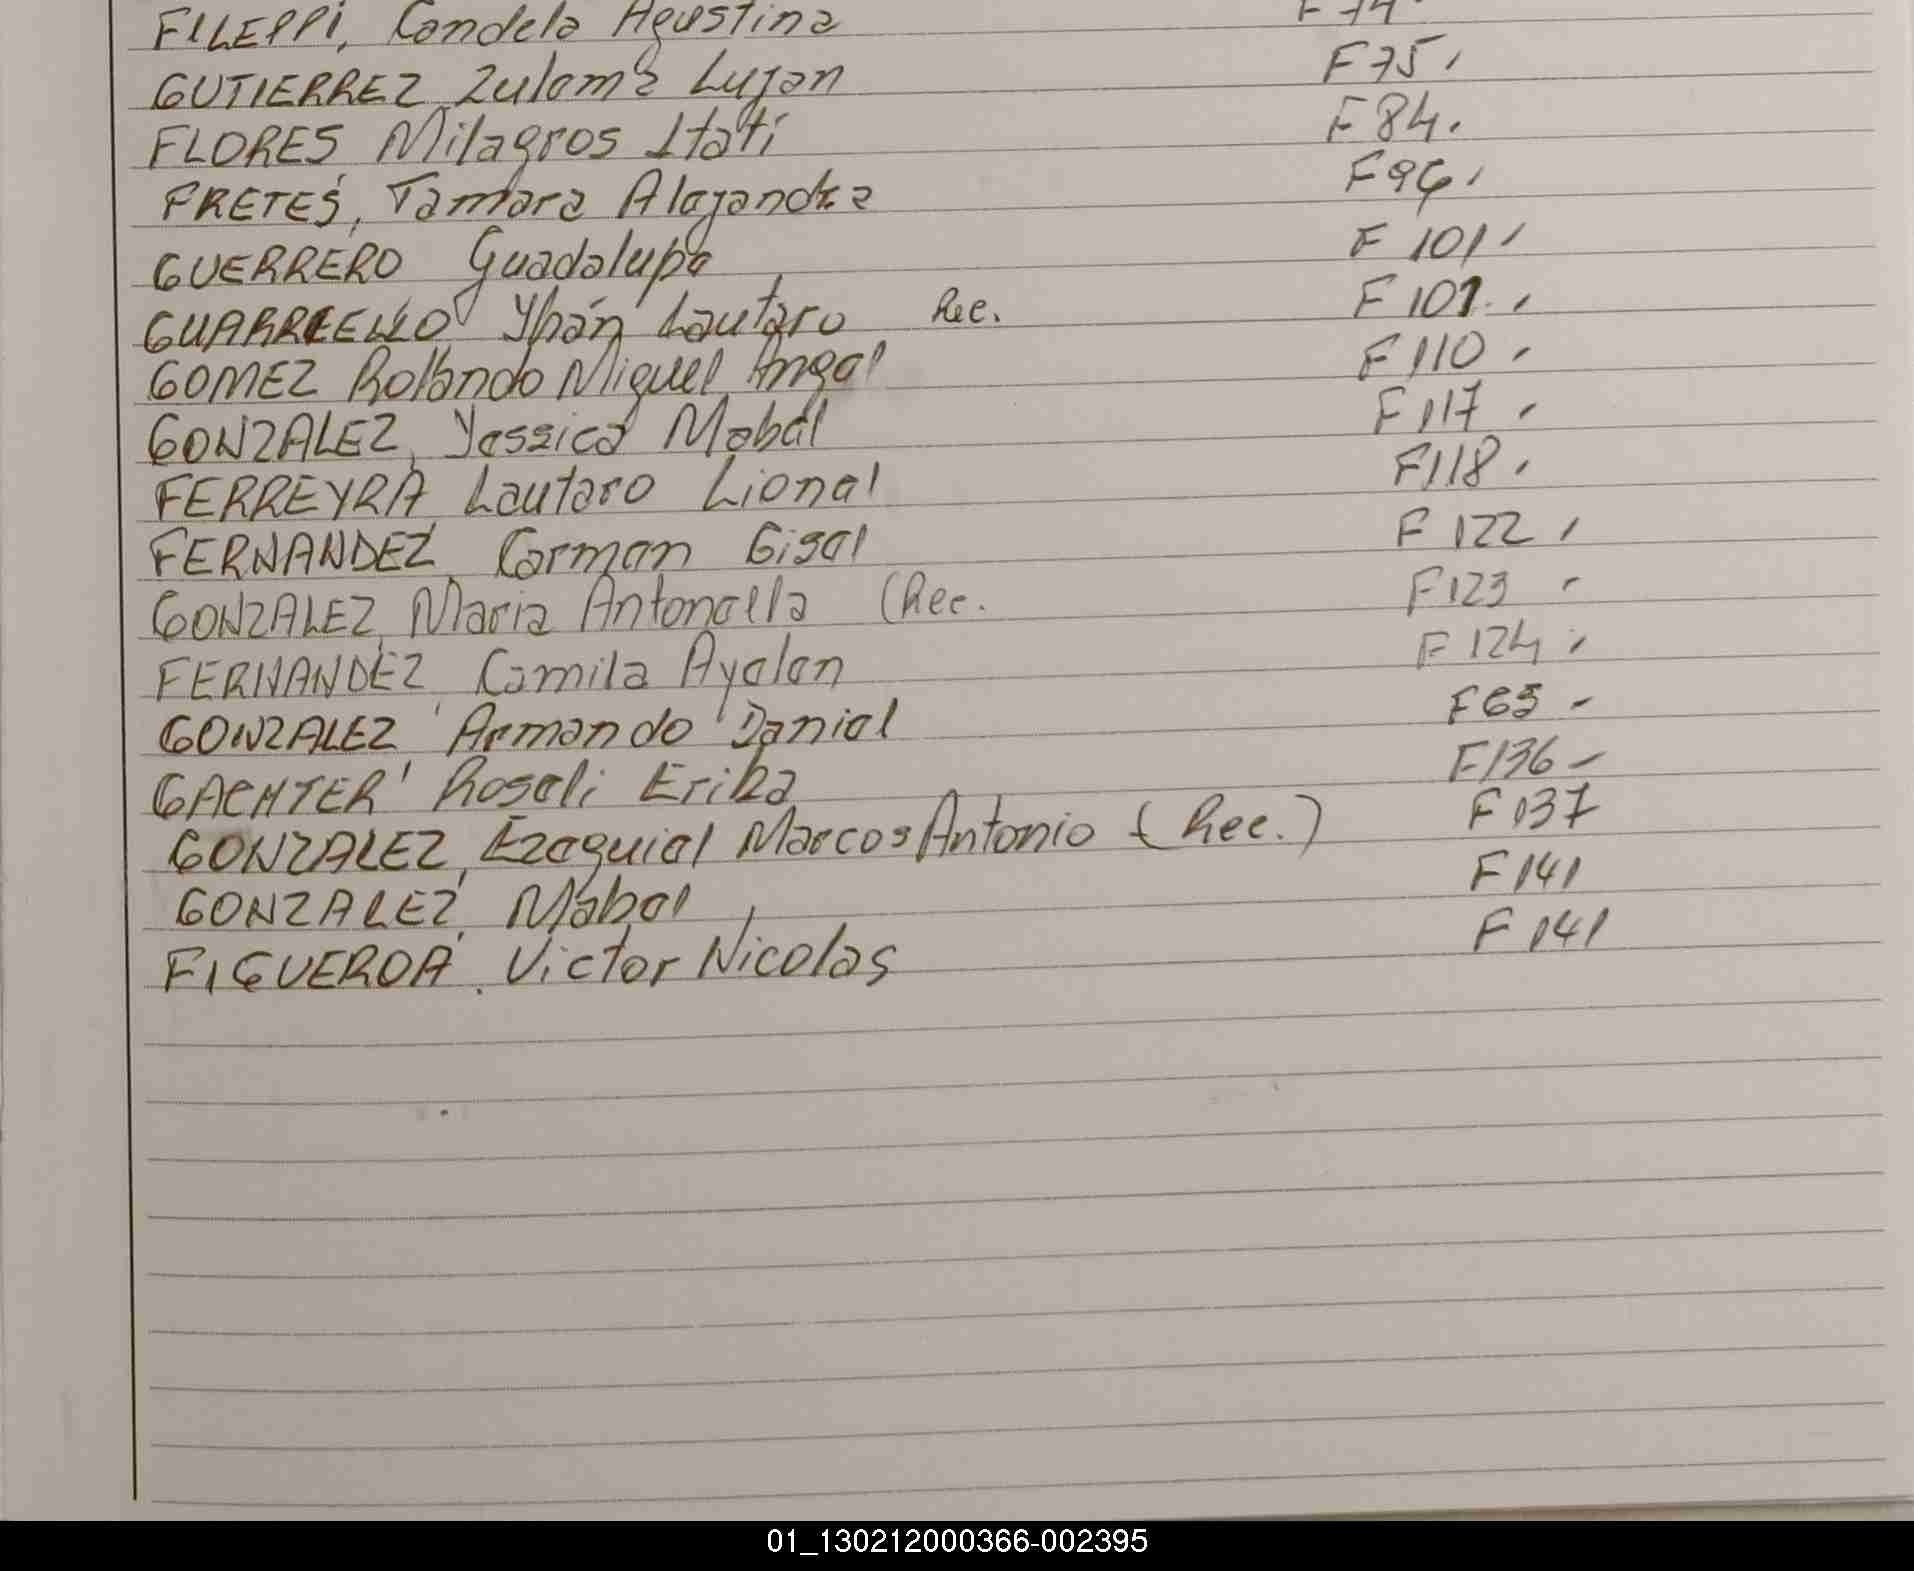 FILEPPI, Candela Agustina F 74
GUTIERREZ Zulema Lujan F 75
FLORES Milagros Itatí F 84
FRETES, Tamara Alejandra F 96
GUERRERO Guadalupe F 101
Ybán Lautaro Rec. F 101
GOMEZ Rolando Miguel Angel F 110
GONZALEZ, Yessica Mabel F 117
FERREYRA Lautaro Lionel F 118
FERNANDEZ Carmen Gisel F 122
GONZALEZ, Maria Antonella (Rec. F 123
FERNANDEZ Camila Ayelen F 124
GONZALEZ Armando Daniel F 65
GACHTER Roseli Erika F 136
GONZALEZ, Ezequiel Marcos Antonio (Rec.) F 137
GONZALEZ, Mabel F 141
FIGUEROA, Victor Nicolas F 141
01_130212000366-002395